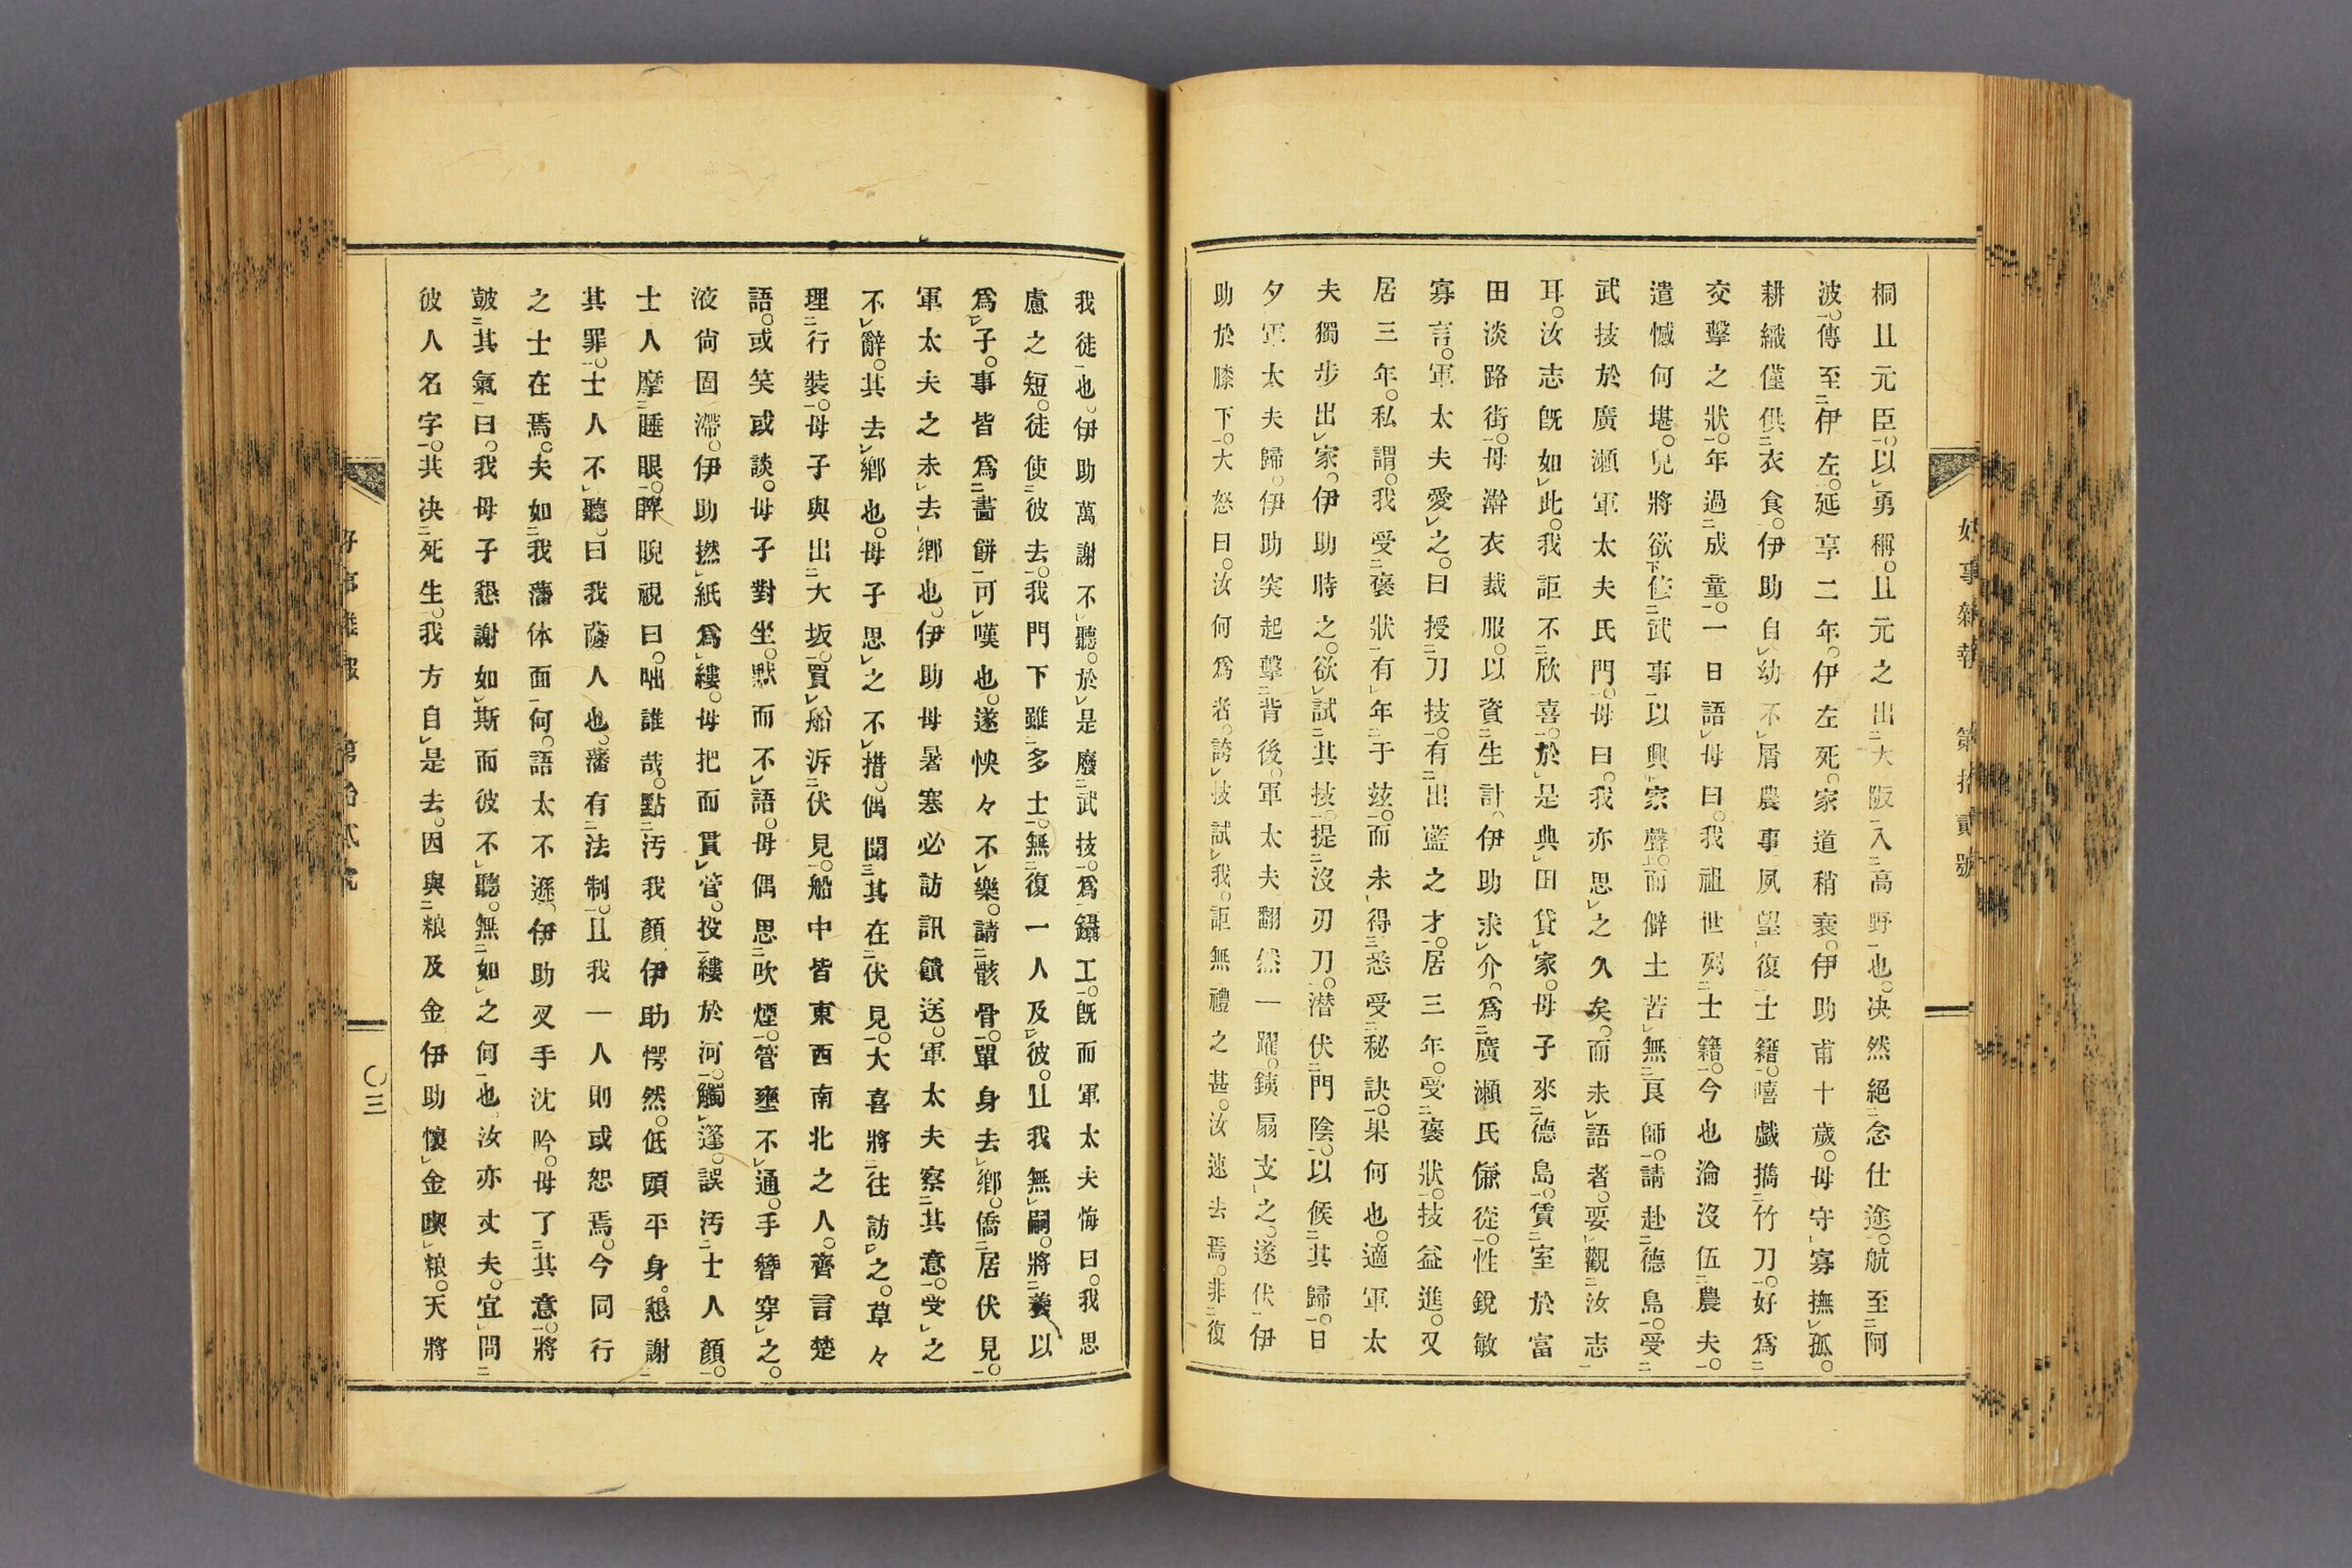 好事雜報　第拾貳號
桐且元臣。以勇稱。且元之出大阪入高野也。决然絕念仕途。航至阿
波。傳至伊左。延享二年。伊左死。家道稍衰。伊助甫十歲。母守寡撫孤。
耕織僅供衣食。伊助自幼不屑農事夙望復士籍。嘻戯撟竹刀。好爲
交擊之狀。年過成童。一日語母曰。我祖世列士籍。今也淪沒伍農夫。
遣憾何堪。兒將欲仕武事以興家聲。而僻土苦無良師。請赴德島。受
武技於廣瀬軍太夫氏門。母曰。我亦思之久矣。而未語者。要觀汝志
耳。汝志既如此。我詎不欣喜。於是典田貸家。母子來德島。賃室於富
田淡路街。母澣衣裁服。以資生計。伊助求介。爲廣瀬氏傔從。性銳敏
寡言。軍太夫愛之。曰授刀技。有出藍之才。居三年。受褒狀。技益進。又
居三年。私謂。我受褒狀有年于玆。而未得悉受秘訣。果何也。適軍太
夫獨步出家。伊助時之。欲試其技。提沒刃刀。潜伏門陰。以候其歸。日
夕軍太夫歸。伊助突起擊背後。軍太夫翻然一躍。鐵扇支之。遂伏伊
助於膝下。大怒曰。汝何爲者。誇技試我。詎無禮之甚。汝速去焉。非復
我徒也。伊助萬謝不聽。於是廢武技。爲鑷工。既而軍太夫悔曰。我思
慮之短。徒使彼去。我門下雖多士。無復一人及彼。且我無嗣。將養以
爲子。事皆爲畵餅可嘆也。遂怏々不樂。請骸骨。單身去鄕。僑居伏見。
軍太夫之未去鄕也。伊助母暑寒必訪訊饋送。軍太夫察其意。受之
不辭。其去鄕也。母子思之不措。偶聞其在伏見。大喜將往訪之。草々
理行裝。母子與出大坂。買船泝伏見。船中皆東西南北之人。齊言楚
語。或笑或談。母子對坐。默而不語。母偶思吹煙。管壅不通。手簪穿之。
液尙固滯。伊助撚紙爲縷。母把而貫管。投縷於河。觸篷。誤汚士人顏。
士人摩睡眼。睥睨視曰。咄誰哉。點汚我顏伊助愕然。低頭平身。懇謝
其罪。士人不聽。曰我薩人也。藩有法制。且我一人則或恕焉。今同行
之士在焉。夫如我藩体面何。語太不遜。伊助叉手沈吟。母了其意。將
皷其氣曰。我母子懇謝如斯而彼不聽。無如之何也。汝亦丈夫。宜問
彼人名字。共决死生。我方自是去。因與粮及金伊助懷金喫粮。天將
〇三